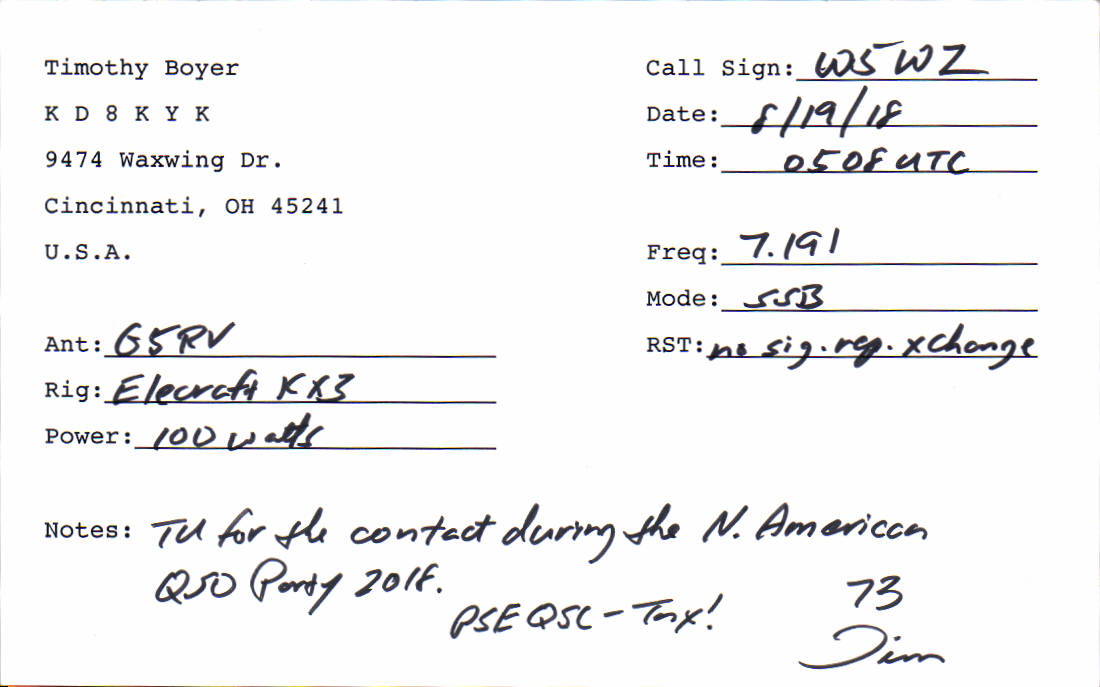 Timothy Boyer
K D 8 K Y K
9474 Waxwing Dr.
Cincinnati, OH 45241
U.S.A.
Call Sign: W5WZ
Date: 8/19/18
Time: 0508 UTC
Freq: 7.191
Mode: SSB
RST: no sig. rep. xchange
Ant: G5RV
Rig: Elecraft KX3
Power: 100 watts
Notes: TU for the contact during the N. American
QSO Party 2018.
PSE QSL - Tnx!
73
Tim